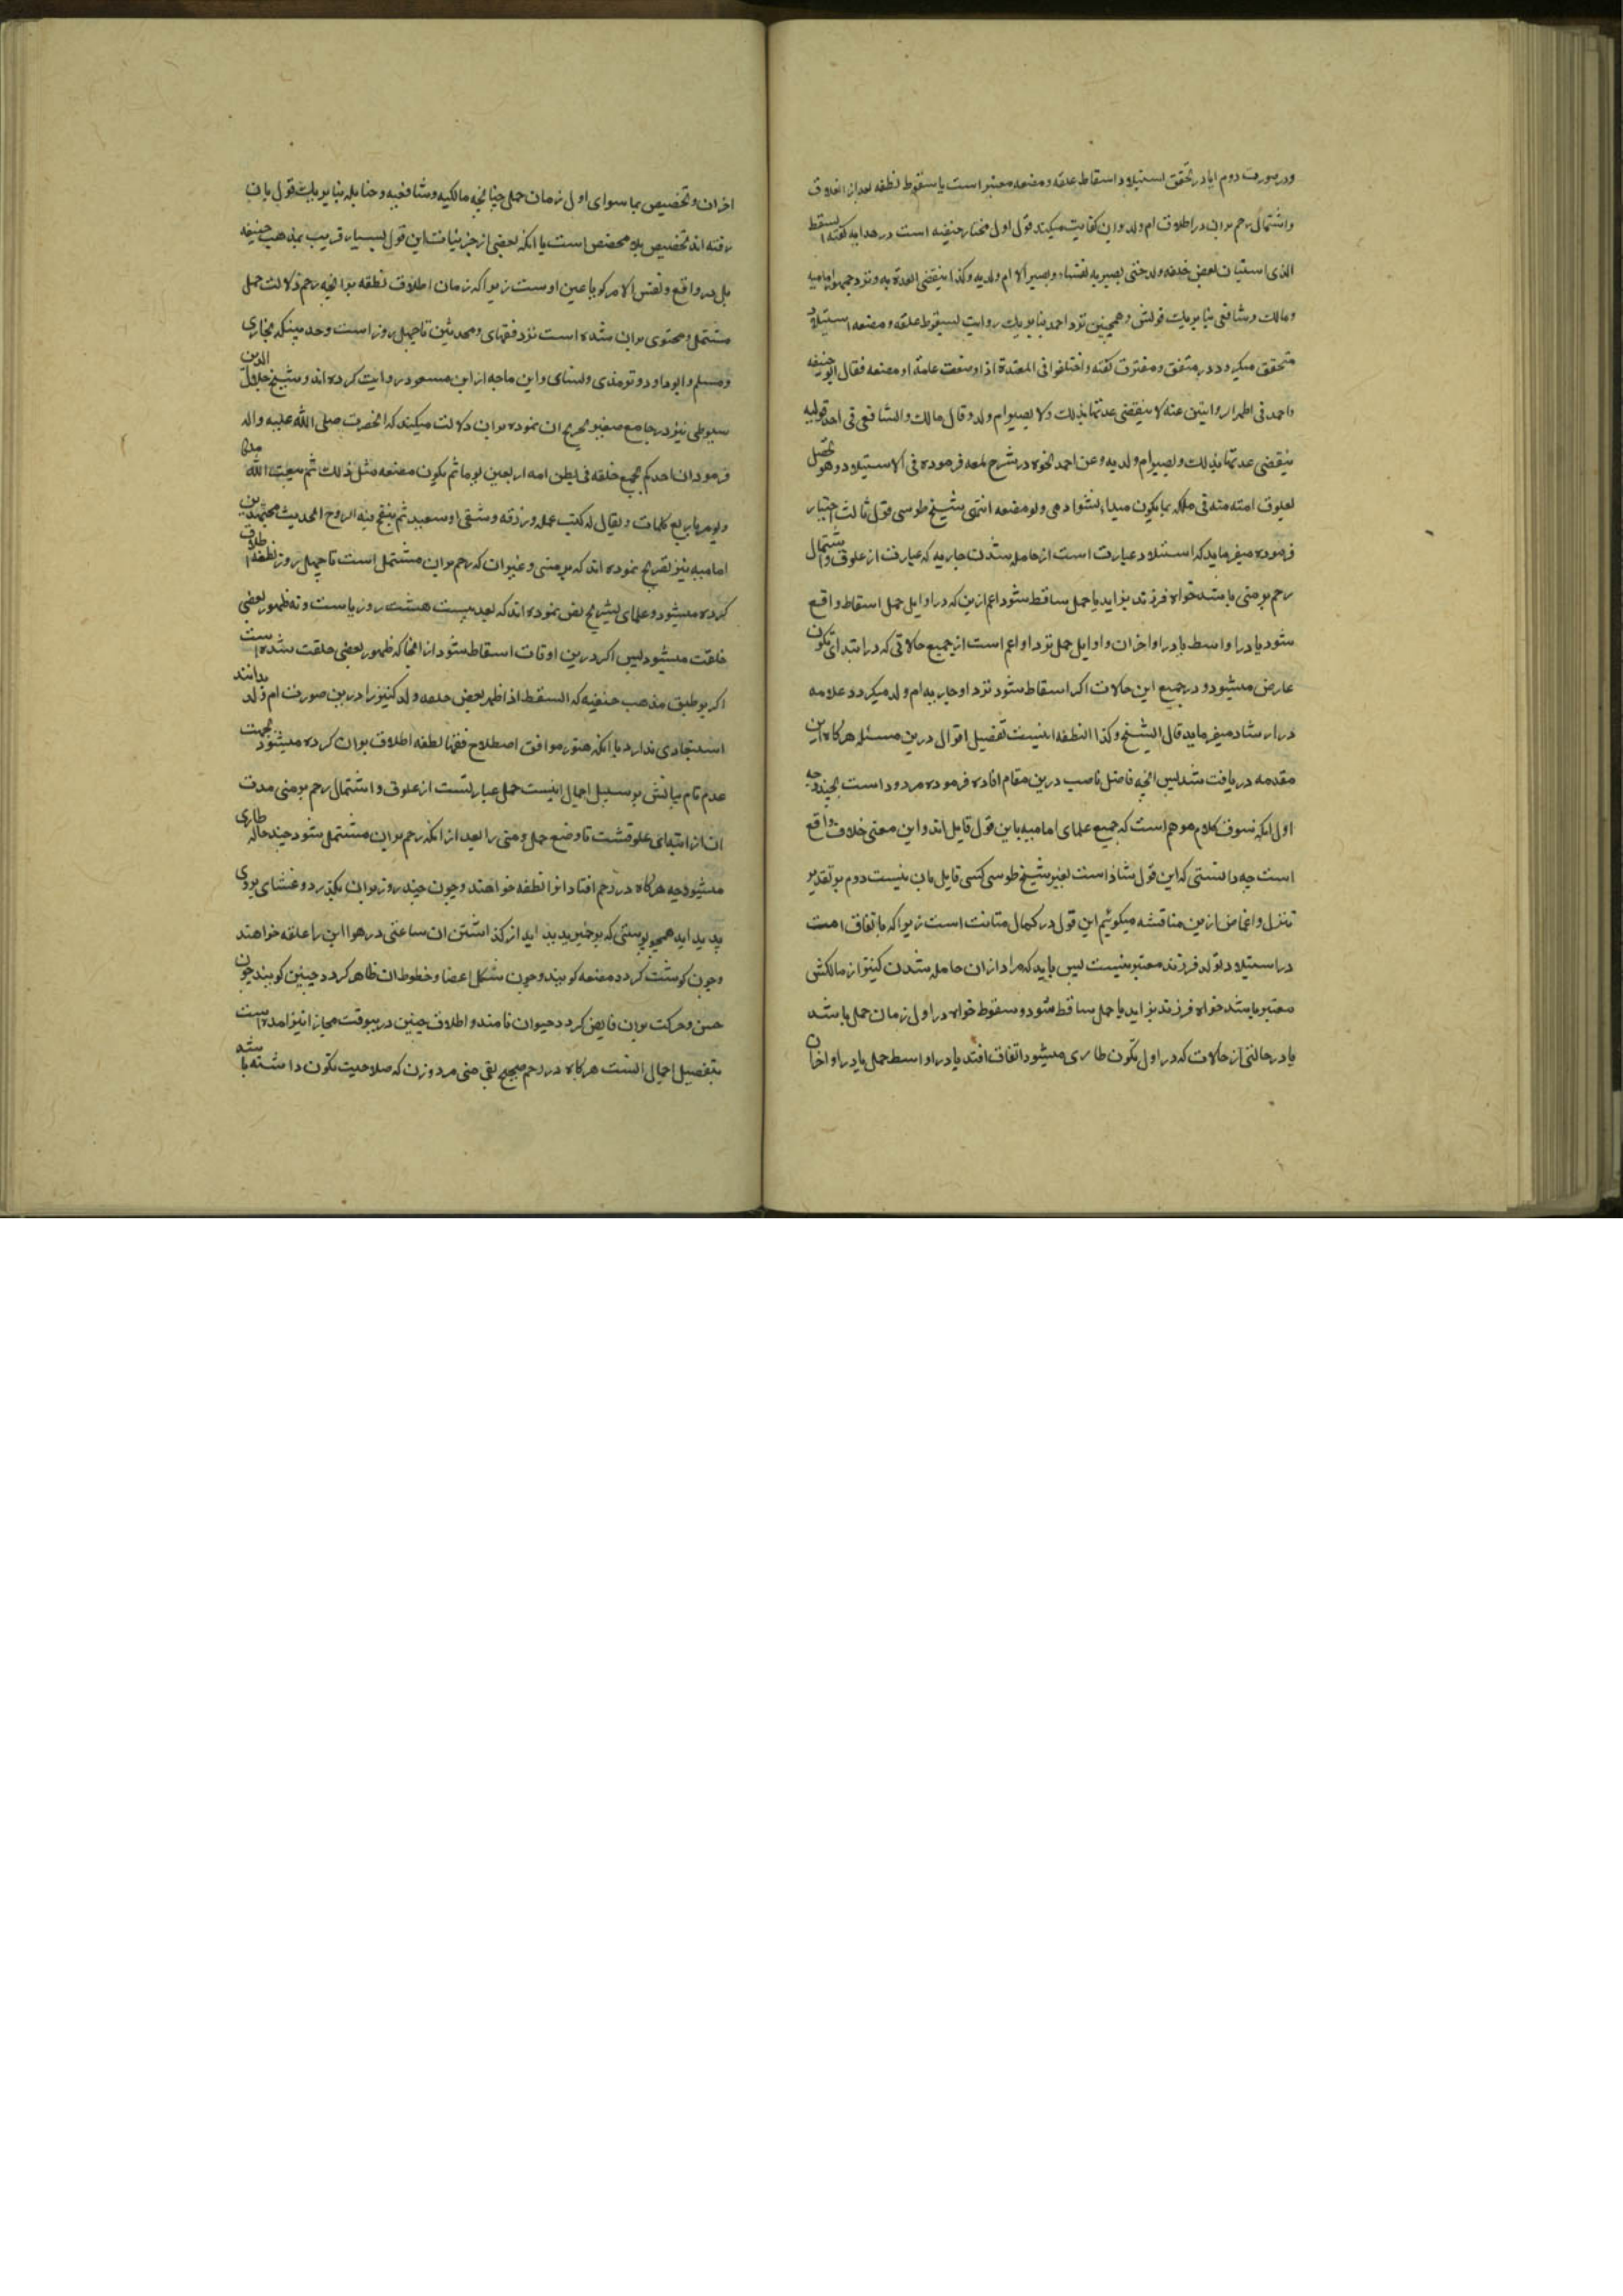 ودر صورت دوم ایا در تحقق استیلاد اسقاط علقه و مضغه معتبر است یا سقوط نطفه بعد از انعلاق
واشتمال رحم بران در اطلاق ام ولد وان کفایت میکند قول اول مختار حنیفه است در هدایه گفته السقط
الذی استبان بعض خلقه ولد حتی تصیر به نفساء وتصیر الامة ام ولد به وکذا ینقضی العدة به ونزد جمهور امامیه
ومالک وشافعی بنا بر یک قولش وهمچنین نزد احمد بنا بر یک روایت بسقوط علقه و مضغه استیلاد
متحقق میکردد در متفق ومفترق گفته واختلفوا فی المعتدة اذا وضعت علقة او مضغه فقال ابو حنیفه
واحمد فی اظهر الروایتین عنه لا ینقضی عدتها بذلک ولا تصیر ام ولد وقال مالک والشافعی فی احد قولیه
ینقضی عدتها بذلک وتصیر ام ولد به وعن احمد نحوه در شرح لمعه فرموده فی الاستیلاد وهو یحصل
بعلوق امته منه فی ملکه بما یکون مبداء نشو ادمی ولو مضغه انتهی شیخ طوسی قول ثالث اختیار
فرموده میفرماید که استیلاد عبارت است از حامله شدن جاریه که عبارت از علوق واشتمال
رحم بر منی باشد خواه فرزند بزاید یا حمل ساقط شود اعم ازین که در اوایل حمل اسقاط واقع
شود یا در اواسط یا در اواخر ان و اوایل حمل نزد او اعم است از جمیع حالاتی که در ابتدای تکون
عارض میشود ودر جمیع این حالات اکر اسقاط شود نزد او جاریه ام ولد میکردد علامه
در ارشاد میفرماید قال الشیخ وکذا النطفه اینست تفصیل اقوال درین مسئله هرکاه این
مقدمه دریافت شد پس انچه فاضل ناصب درین مقام افاده فرموده مردود است بچند وجه
اول انکه سوق کلام موهم است که جمیع علمای امامیه باین قول قایل اند واین معنی خلاف واقع
است چه دانستی که این قول شاذ است بغیر شیخ طوسی کسی قایل بان نیست دوم بر تقدیر
تنزل واغماض ازین مناقشه میکوئیم این قول در کمال متانت است زیرا که باتفاق امت
در استیلاد تولد فرزند معتبر نیست پس باید که مراد ازان حامله شدن کنیز از مالکش
معتبر باشد خواه فرزند بزاید یا حمل ساقط شود وسقوط خواه در اول زمان حمل باشد
یا در حالتی از حالات که در اول تکون طاری میشود اتفاق افتد یا در اواسط حمل یا در اواخر ان
اخر ان وتخصیص بما سوای اول زمان حمل چنانچه مالکیه وشافعیه وحنابله بنا بر یک قول بان
رفته اند تخصیص بلا مخصص است با انکه بعضی از جزئیات این قول بسیار قریب بمذهب حنیفه
بل در واقع ونفس الامر کویا عین اوست زیرا که زمان اطلاق نطفه بر انچه رحم دلالت حمل
مشتمل ومحتوی بران شده است نزد فقهای ومحدثین تا چهل روز است وحدیثیکه بخاری
ومسلم وابو داود وترمذی ونسای وابن ماجه از ابن مسعود روایت کرده اند وشیخ جلال الدین
سیوطی نیز در جامع صغیر تخریج ان نموده بران دلالت میکند که انحضرت صلی الله علیه واله
فرمود ان احدکم یجمع خلقه فی بطن امه اربعین یوما ثم یکون مضغه مثل ذلک ثم یبعث الله ملکا
ویومر باربع کلمات ویقال له کتب عمله ورزقه وشقی او سعید ثم ینفخ فیه الروح الحدیث مجتهدین
امامیه نیز تصریح نموده اند که بر منی وغیر ان که رحم بران مشتمل است تا چهل روز نطفه اطلاق
کرده میشود وعلمای تشریح نص نموده اند که بعد بیست هشت روز یاست وته ظهور بعضی
خلقت میشود پس اکر درین اوقات اسقاط شود از انجا که ظهور بعضی خلقت شده است
اکر بر طبق مذهب حنفیه که السقط اذا ظهر بعض خلقه ولد کنیز را درین صورت ام ولد بدانند
استبعادی ندارد با انکه هنوز موافق اصطلاح فقها نطفه اطلاق بران کرده میشود بجهت
عدم تام بیانش بر سبیل اجمال اینست حمل عبارتست از علوق واشتمال رحم بر منی مدت
ان از ابتدای علوقشت تا وضع حمل ومنی را بعد از انکه رحم بران مشتمل شود چند حاله طاری
میشود چه هرکاه در رحم افتاد انرا نطفه خواهند وچون چند روز بران بکذرد وغشای بروی
پدید اید همچو پوستی که بر خمیر پدید اید از کذاشتن ان ساعتی در هوا این را علقه خواهند
وچون کوشت کردد مضغه کویند وچون شکل اعضا وخطوط ان ظاهر کردد جنین کویند چون
حس وحرکت بران فایض کردد حیوان نامند واطلاق جنین در ینوقت مجازا نیز امده است
تفصیل اجمال انست هرکاه در رحم صحیح نقی منی مرد وزن که صلاحیت تکون داشته باشد